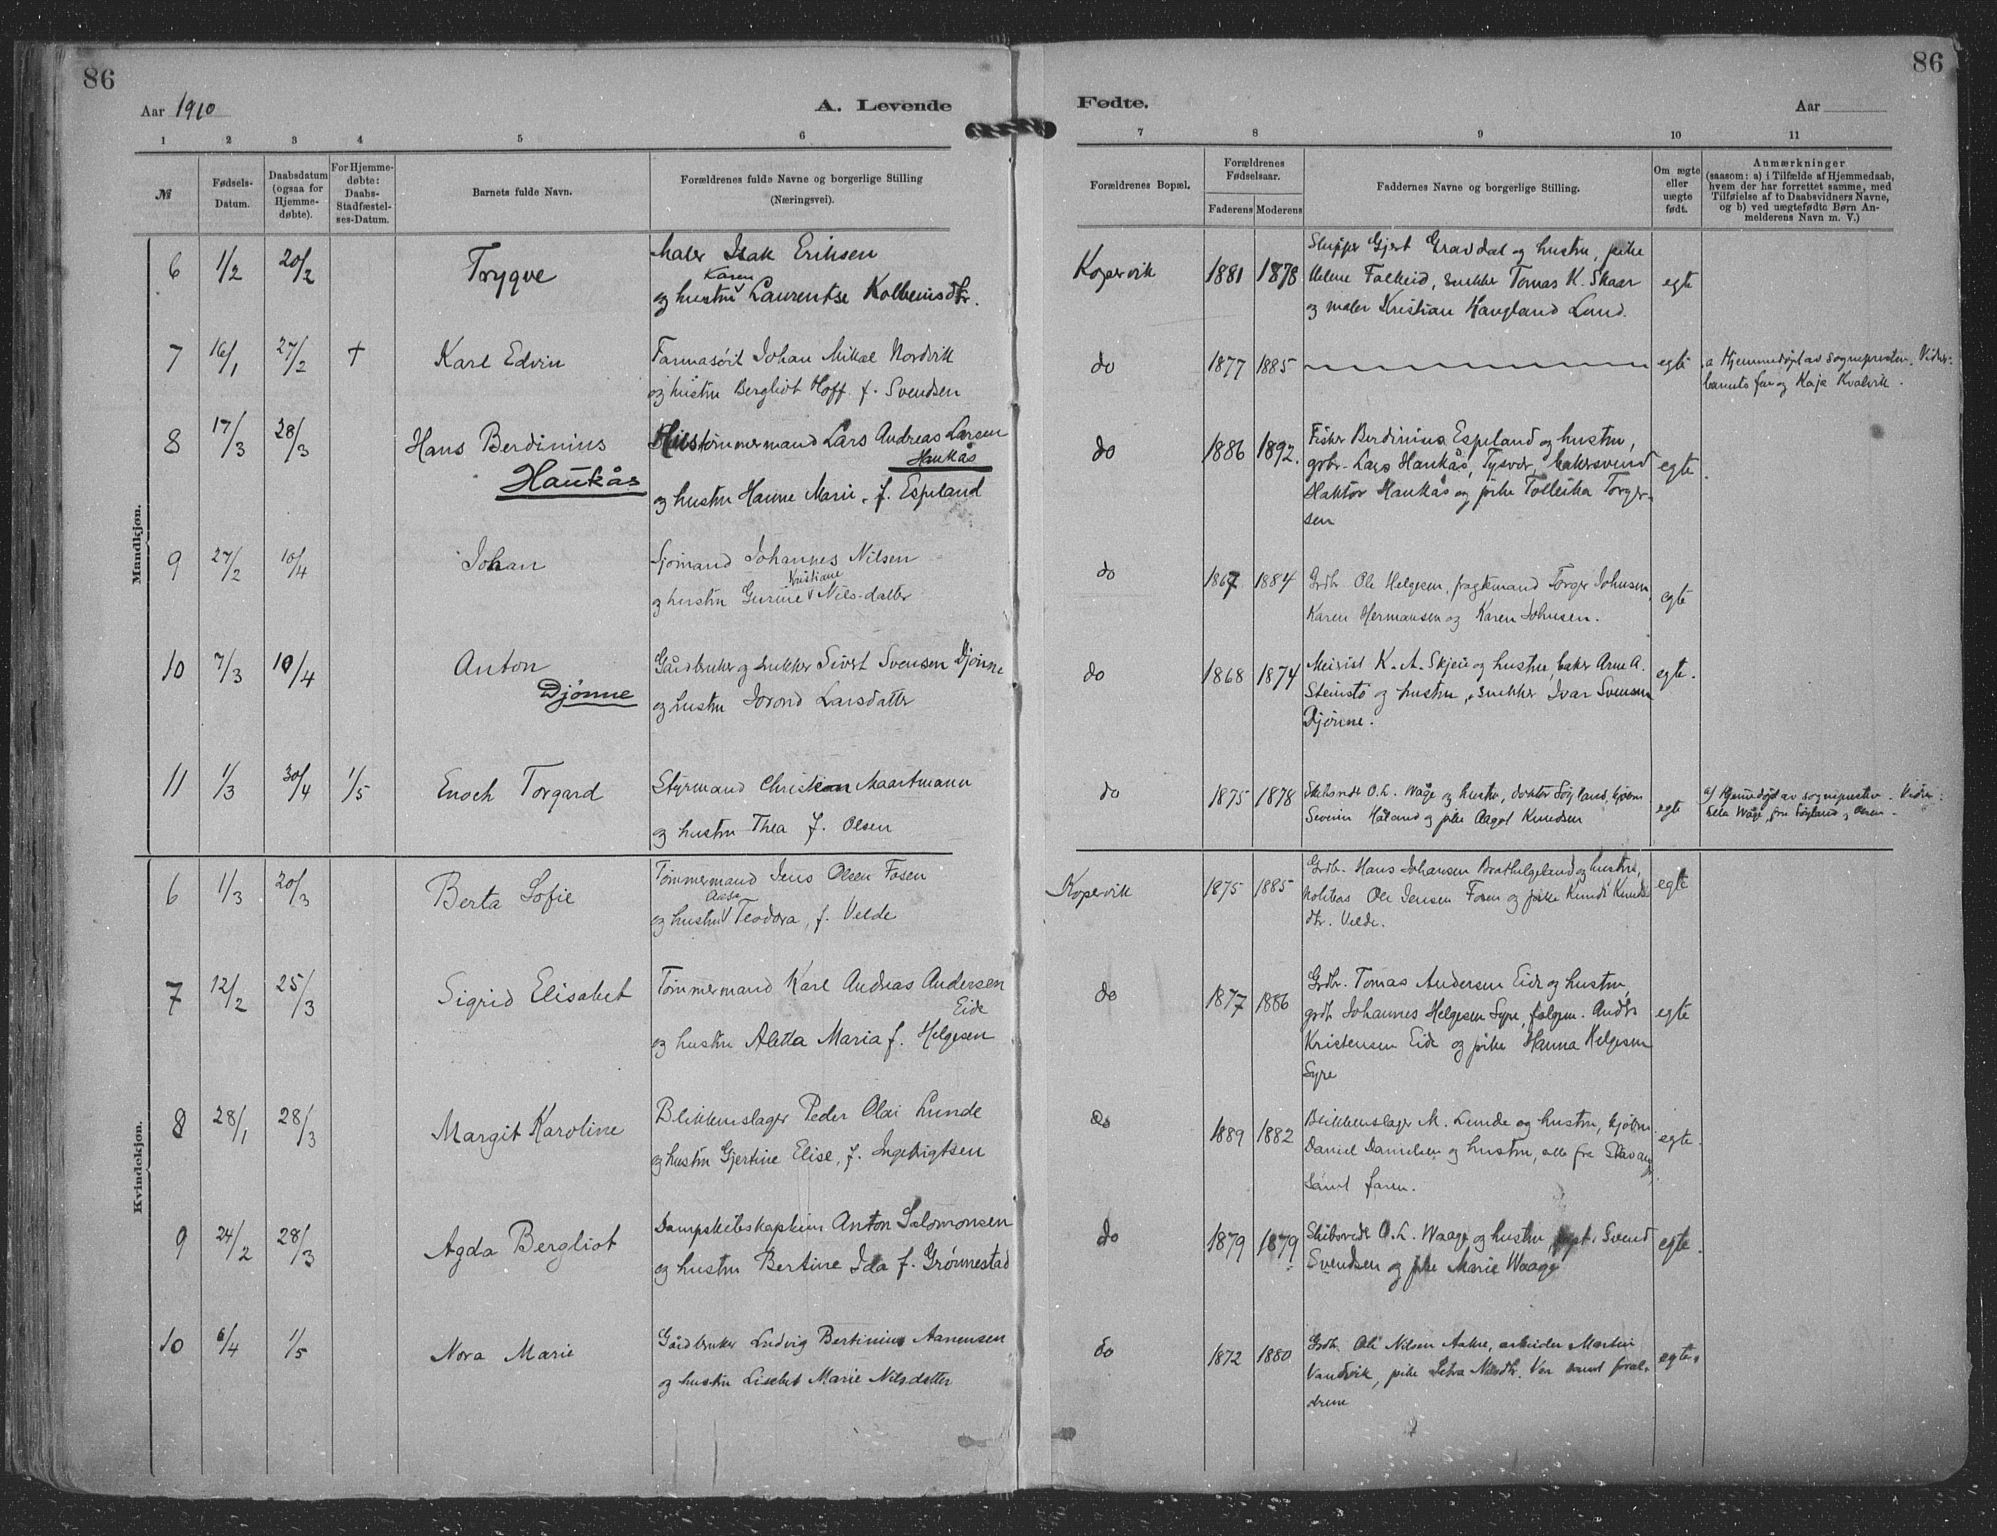 86
86
Aar 1910
A. Levende
Fødte.
Aar
1 2 3 4 5 6 7 8 9 10 11
№
Fødsels-Datum.
Daabsdatum (ogsaa for Hjemmedøbte).
For Hjemmedøbte: Daabs-Stadfæstelses-Datum.
Barnets fulde Navn.
Forældrenes fulde Navne og borgerlige Stilling (Næringsvei).
Forældrenes Bopæl.
Forældrenes Fødselsaar.
Faderens Moderens
Faddernes Navne og borgerlige Stilling.
Om ægte eller uægte født.
Anmærkninger
(saasom: a) i Tilfælde af Hjemmedaab, hvem der har forrettet samme, med Tilføielse af to Daabsvidners Navne, og b) ved uægtefødte Børn Anmelderens Navn m. V.)
Mandkjøn.
6 1/2 20/2 Trygve
Maler Isak Eriksen
Karen
og hustru Laurentse Kolbeinsdtr.
Kopervik 1881 1878
Skipper Gjert Gravdal og hustru, pike
Helene Falkeid, snekker Tomas K. Skaar
og maler Kristian Haugland Lund.
egte
7 16/1 27/2 † Karl Edvin
Farmasøit Johan Mikal Nordvik
og hustru Bergliot Hoff f. Svendsen
do 1877 1885
egte
a Hjemmedøpt av sognepresten. Vidner:
barnets far og Kaja Kvalvik.
8 17/3 28/3 Hans Berdinius
Haukås
tømmermand Lars Andreas Larsen
Haukås
og hustru Hanne Marie, f. Espeland
do 1886 1892.
Fisker Berdinius Espeland og hustru,
grbr. Lars Haukås, Tysvær, bakersvend
Haktor Haukås og pike Tolleika Torger-
sen
egte
9 27/2 10/4 Johan
Sjømand Johannes Nilsen
Kristiane
og hustru Gurine Nils-datter
do 1867 1884
Grdb. Ole Helgesen, fragtemand Torger Johnsen,
Karen Hermansen og Karen Johnsen.
egte
10 7/3 10/4 Anton
Djønne
Gårdbruker og snekker Sivert Svensen Djønne
og hustru Jorond Larsdatter
do 1868 1874
Meirist K. A. Skjeie og hustru, baker Arne A.
Steinstø og hustru, snekker Ivar Svensen
Djønne.
egte.
11 1/3 30/4 1/5 Enoch Torgard
Styrmand Christian Maartmann
og hustru Thea f. Olsen
do 1875 1878
O. L. Wåge og hustru, doktor Søyland, kjøbm.
Severin Håland og pike Aagot Knudsen
egte
a) Hjemmedøpt av sognepresten. Vidner:
Wåge, fru Søyland, Olsen
Kvindekjøn.
6 1/3 20/3 Berta Sofie
Tømmermand Jens Olsen Fosen
og hustru Teodora, f. Velde
Kopervik 1875 1885
Grdb. Hans Johansen Bratthelgeland og hustru,
Ole Jensen Fosen og pike Kundi Knuds
dtr. Velde.
egte
7 12/2 25/3 Sigrid Elisabet
Tømmermand Karl Andreas Andersen
Eide
og hustru Aletta Maria f. Helgesen
do 1877 1886
Grdb. Tomas Andersen Eide og hustru,
grdb Johannes Helgesen Syre, Andrs
Kristensen Eide og pike Hanna Helgesen
Syre
egte
8 28/1 28/3 Margit Karoline
Blikkenslager Peder Olai Lunde
og hustru Gjertine Elise, f. Ingebrigtsen
do 1889 1882
Blikkenslager M. Lunde og hustru, kjøbm.
Daniel Danielsen og hustru, alle fra Stavanger,
samt faren.
egte.
9 24/2 28/3 Agda Bergliot
Dampskibskaptein Anton Salomonsen
og hustru Bertine Ida f. Grønnestad
do 1879 1879
O. L. Waage og hustru, kapt. Svend
Svendsen og pike Marie Waage
egte.
10 6/4 1/5 Nora Marie
Gårdbruker Ludvig Bertinius Aanensen
og hustru Lisebet Marie Nilsdatter
do 1872 1880
Grdb. Ole Nilsen Aakre, arbeider Martin
Vandvik, pike Petra Nilsdtr. samt foræl-
drene
egte.